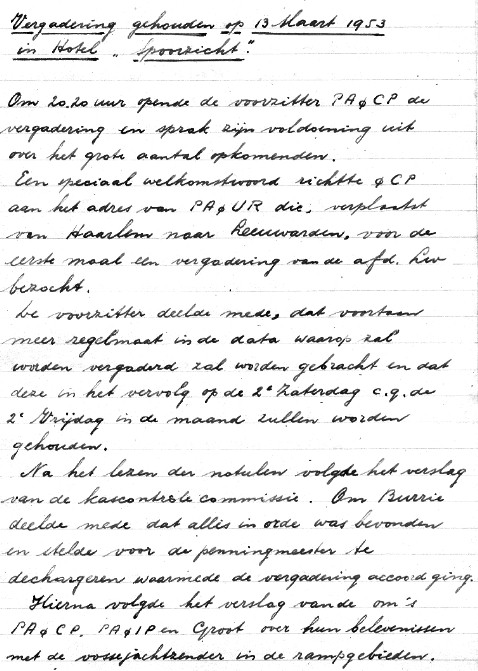 Vergadering gehouden op 13 Maart 1953
in Hotel „Spoorzicht".
Om 20.20 uur opende de voorzitter PAøCP de
vergadering en sprak zijn voldoening uit
over het grote aantal opkomenden.
Een speciaal welkomstwoord richtte øCP
aan het adres van PAøUR die, verplaatst
van Haarlem naar Leeuwarden, voor de
eerste maal een vergadering van de afd. Lw
bezocht.
De voorzitter deelde mede, dat voortaan
meer regelmaat in de data waarop zal
worden vergaderd zal worden gebracht en dat
deze in het vervolg op de 2e Zaterdag c.q. de
2e Vrijdag in de maand zullen worden
gehouden.
Na het lezen der notulen volgde het verslag
van de kascontrôle commissie. Om Burrie
deelde mede dat alles in orde was bevonden
en stelde voor de penningmeester te
dechargeren waarmede de vergadering accoord ging.
Hierna volgde het verslag van de om's
PAøCP, PAøIP en Groot over hun belevenissen
met de vossejachtzender in de rampgebieden.